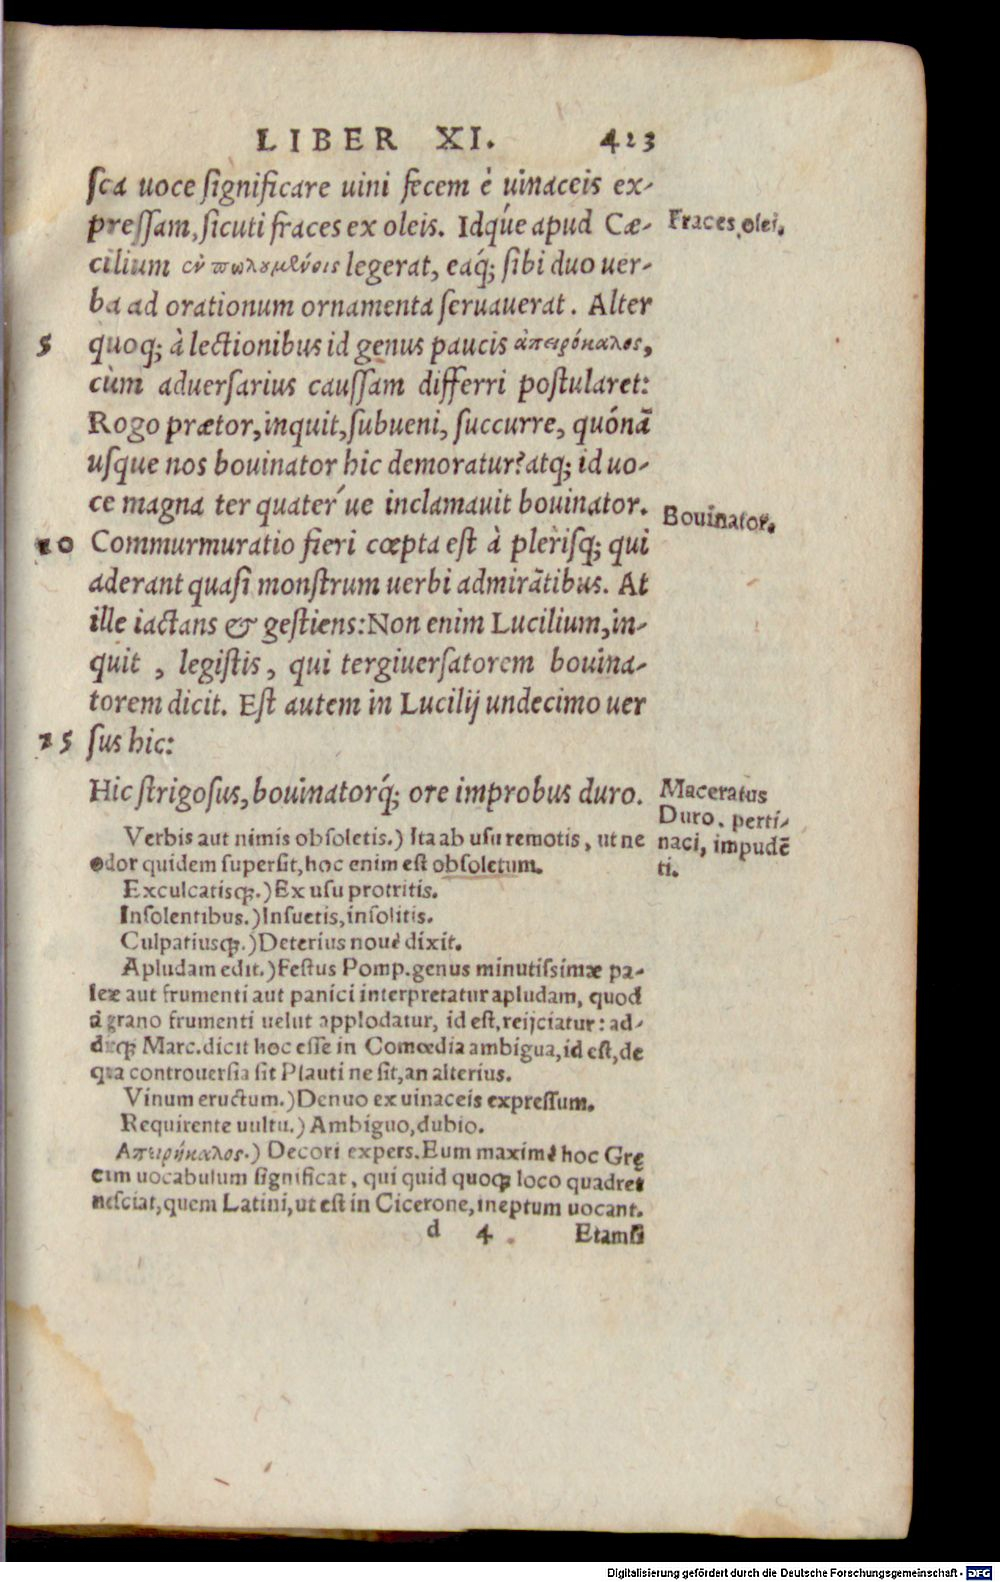 LIBER XI. 423
ſca uoce ſignificare uini fecem è uinaceis ex-
preſſam, ſicuti fraces ex oleis. Idq́ue apud Cæ-
Fraces olei.
cilium ἐν πωλουμένοις legerat, eaq́; ſibi duo uer-
ba ad orationum ornamenta ſeruauerat. Alter
5 quoq; à lectionibus id genus paucis ἀπειρόκαλος,
cùm aduerſarius cauſſam differri poſtularet:
Rogo prætor, inquit, ſubueni, ſuccurre, quónā
uſque nos bouinator hic demoratur? atq; id uo-
ce magna ter quater ́ue inclamauit bouinator.
Bouinator.
10 Commurmuratio fieri cœpta eſt à pleriſq; qui
aderant quaſi monſtrum uerbi admirātibus. At
ille iactans & geſtiens: Non enim Lucilium, in-
quit, legiſtis, qui tergiuerſatorem bouina-
torem dicit. Eſt autem in Lucilij undecimo uer
15 ſus hic:
Hic ſtrigoſus, bouinatorq́; ore improbus duro.
Maceratus
Duro. perti-
naci, impudē
ti.
Verbis aut nimis obſoletis.) Ita ab uſu remotis, ut ne
odor quidem ſuperſit, hoc enim eſt obſoletum.
Exculcatisq;.) Ex uſu protritis.
Inſolentibus.) Inſuetis, inſolitis.
Culpatiusq;.) Deterius nouè dixit.
Apludam edit.) Feſtus Pomp. genus minutiſſimæ pa-
leæ aut frumenti aut panici interpretatur apludam, quod
à grano frumenti uelut applodatur, id eſt, reijciatur: ad-
ditq; Marc. dicit hoc eſſe in Comœdia ambigua, id eſt, de
qua controuerſia ſit Plauti ne ſit, an alterius.
Vinum eructum.) Denuo ex uinaceis expreſſum.
Requirente uultu.) Ambiguo, dubio.
Απειρήκαλος.) Decori expers. Eum maximè hoc Gręc
cum uocabulum ſignificat, qui quid quoq; loco quadret
neſciat, quem Latini, ut eſt in Cicerone, ineptum uocant.
d 4 Etamſi
Digitalisierung gefördert durch die Deutsche Forschungsgemeinschaft - DFG